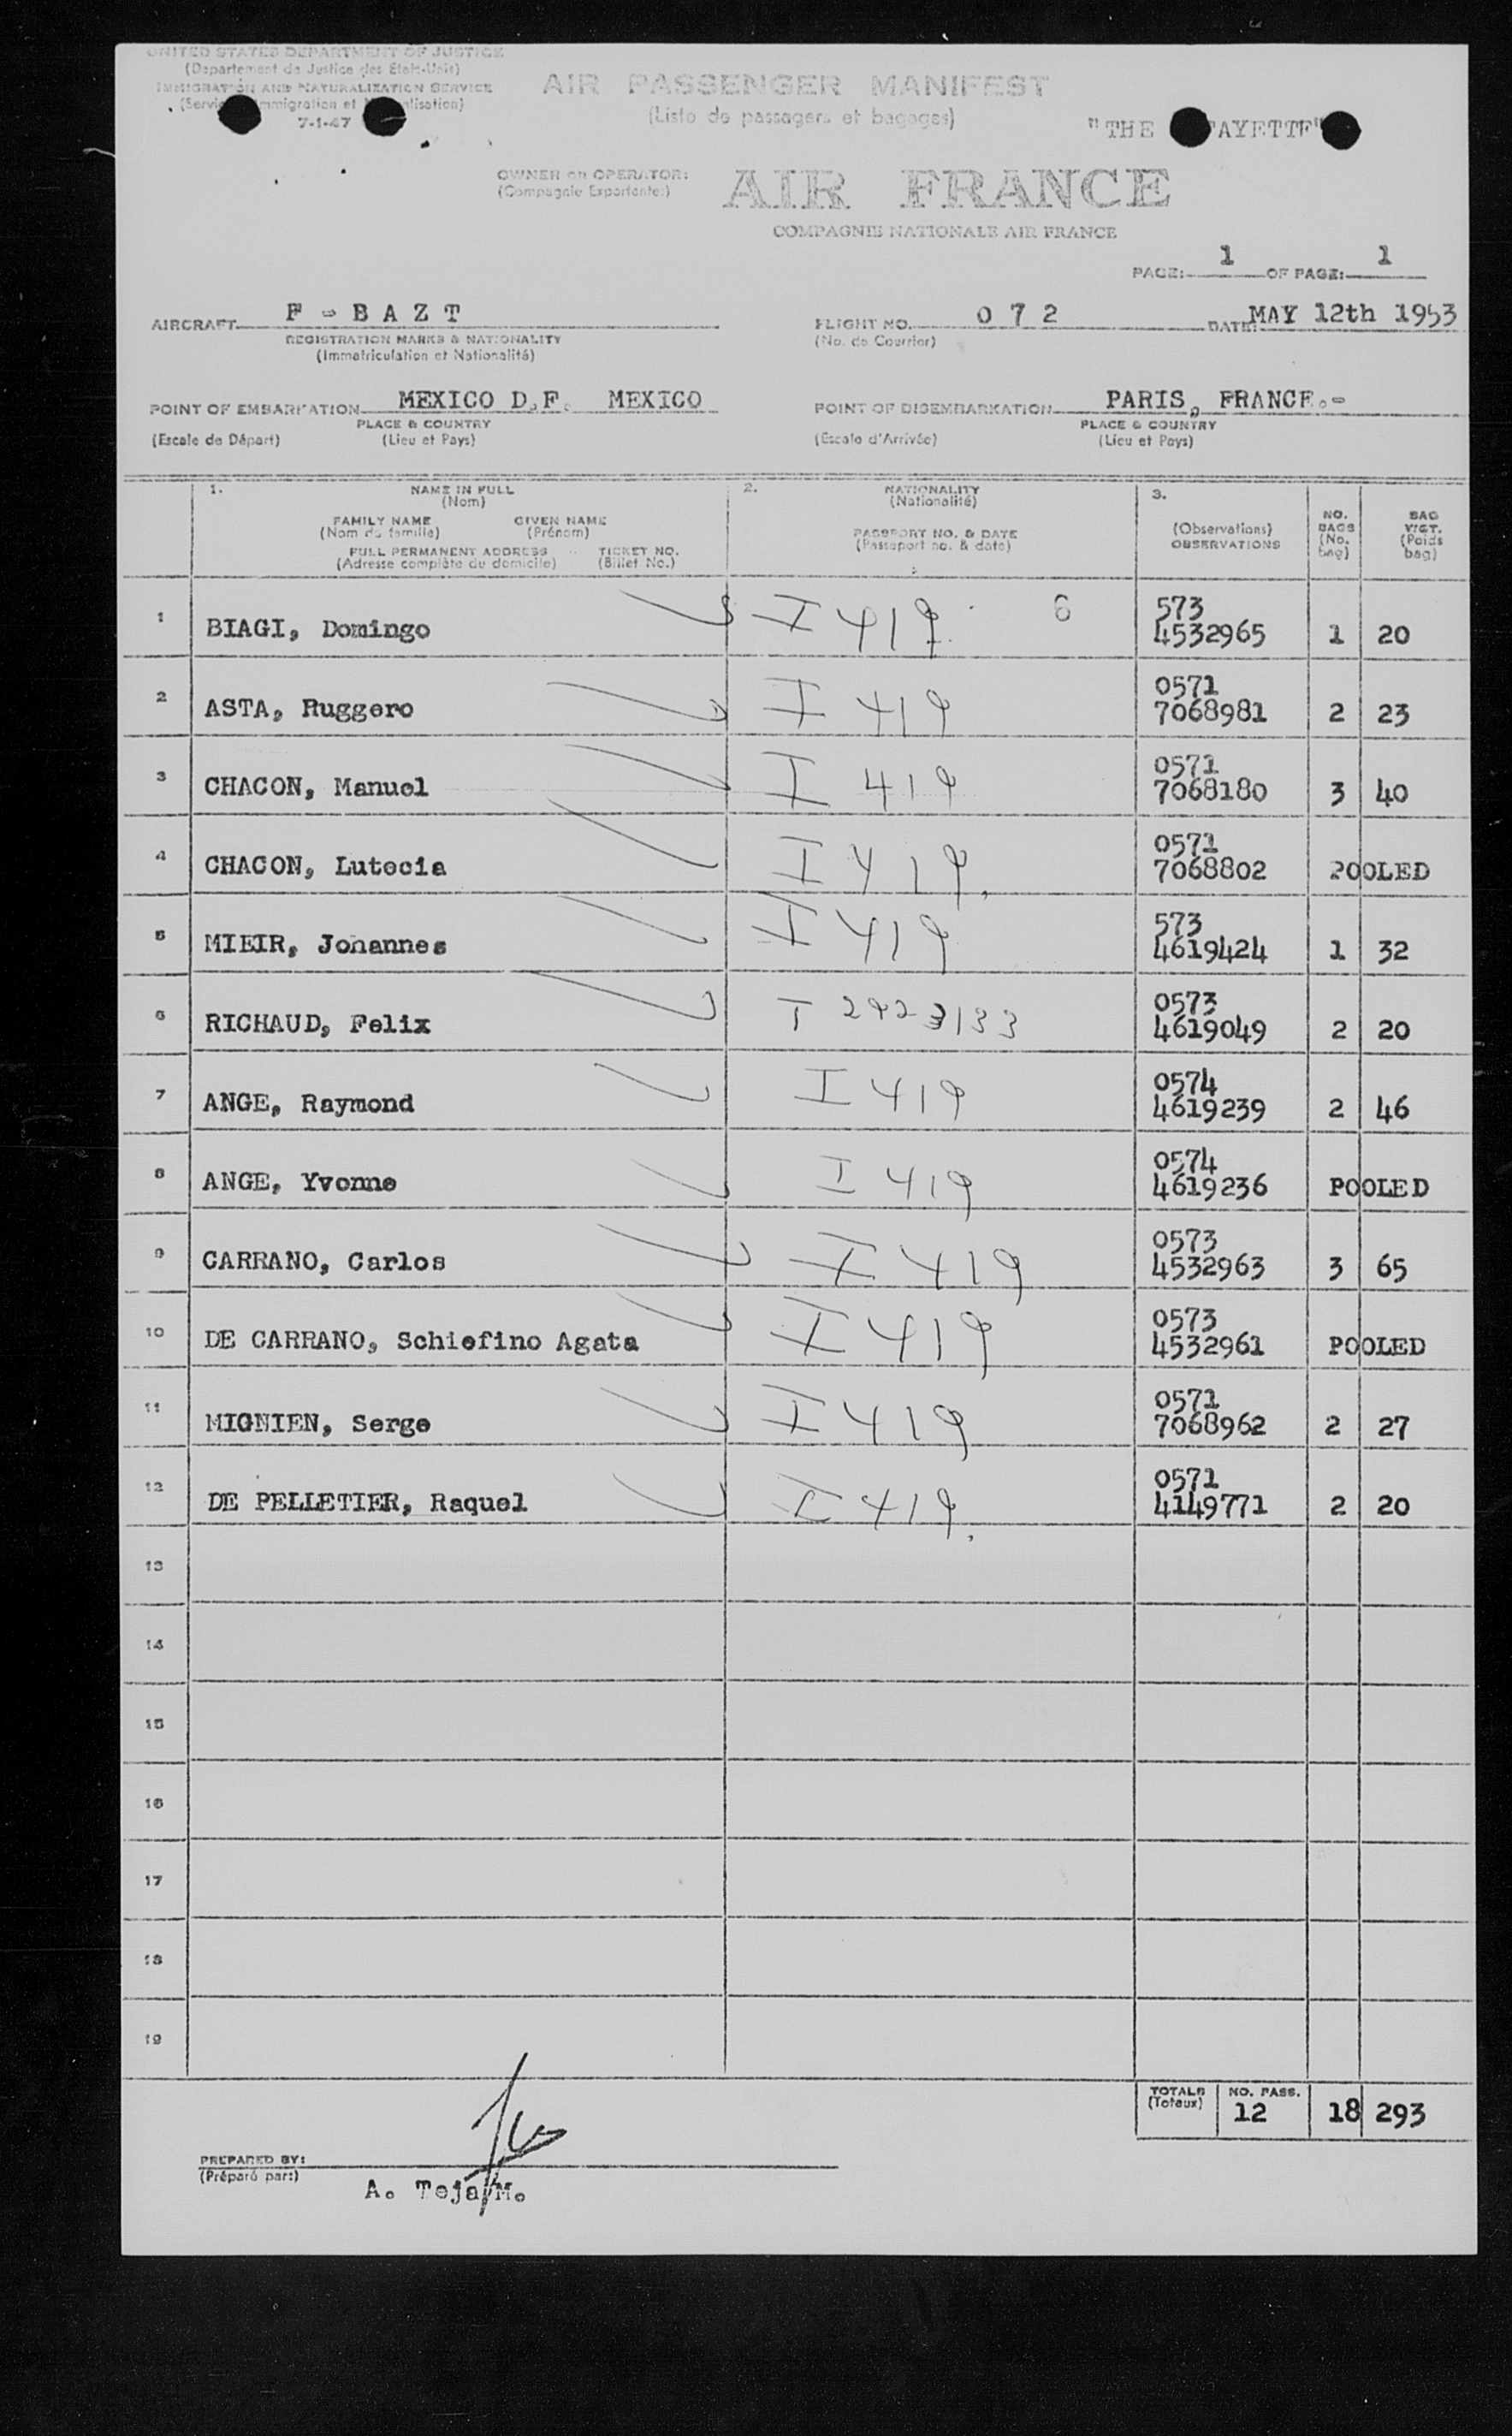 UNITED STATES DEPARTMENT OF JUSTICE
(Departement de Justice des Etats-Unis)
IMMIGRATION AND NATURALIZATION SERVICE
immigration et
7-1-47
AIR PASSENGER MANIFEST
(Liste de passagers et bagages)
"THE AYETTE"
OWNER on OPERATOR:
(Compagnie Exportante:)
AIR FRANCE
COMPAGNIE NATIONALE AIR FRANCE
PAGE: 1 OF PAGE: 1
AIRCRAFT F - B A Z T
REGISTRATION MARKS & NATIONALITY
(Immatriculation et Nationalité)
FLIGHT NO. 0 7 2 DATE: MAY 12th 1953
(No. de Courrier)
POINT OF EMBARKATION MEXICO D.F. MEXICO
PLACE & COUNTRY
(Escale de Départ) (Lieu et Pays)
POINT OF DISEMBARKATION PARIS, FRANCE.-
PLACE & COUNTRY
(Escale d'Arrivée) (Lieu et Pays)
1. NAME IN FULL
(Nom)
FAMILY NAME GIVEN NAME
(Nom de famille) (Prénom)
FULL PERMANENT ADDRESS TICKET NO.
(Adresse complète de domicile) (Billet No.)
2. NATIONALITY
(Nationalité)
PASSPORT NO. & DATE
(Passeport no. & date)
3.
(Observations)
OBSERVATIONS
NO.
BAGS
(No.
bag)
BAG
WGT.
(Poids
bag)
1 BIAGI, Domingo I 419 6 573 4532965 1 20
2 ASTA, Ruggero I 419 0571 7068981 2 23
3 CHACON, Manuel I 419 0571 7068180 3 40
4 CHACON, Lutecia I 419 0571 7068802 POOLED
5 MIEIR, Johannes I 419 573 4619424 1 32
6 RICHAUD, Felix I 2923133 0573 4619049 2 20
7 ANGE, Raymond I 419 0574 4619239 2 46
8 ANGE, Yvonne I 419 0574 4619236 POOLED
9 CARRANO, Carlos I 419 0573 4532963 3 65
10 DE CARRANO, Schiefino Agata I 419 0573 4532961 POOLED
11 MIGNIEN, Serge I 419 0571 7068962 2 27
12 DE PELLETIER, Raquel I 419 0571 4149771 2 20
13
14
15
16
17
18
19
TOTALS NO. PASS.
(Totaux) 12 18 293
PREPARED BY:
(Préparé par:)
A. Teja M.